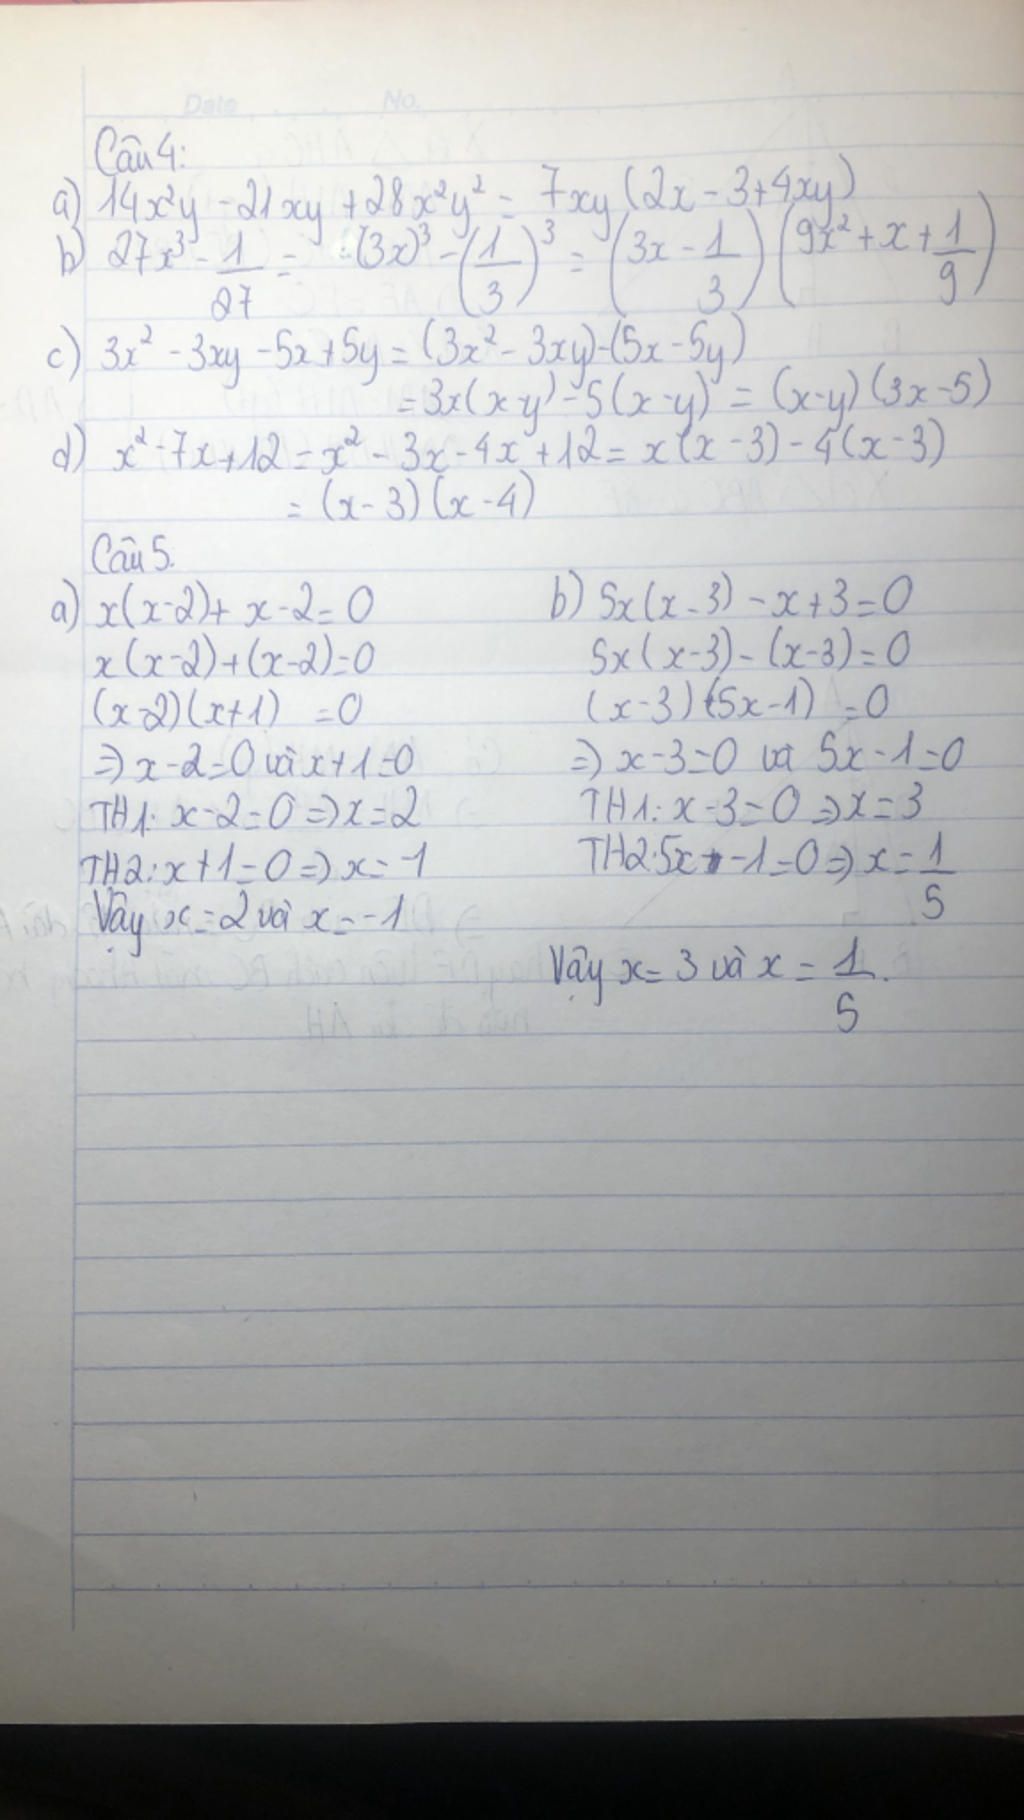 Date No.
Câu 4:
a) 14x²y - 21xy + 28x²y² = 7xy(2x - 3 + 4xy)
b) 27x³ - 1/27 = (3x)³ - (1/3)³ = (3x - 1/3)(9x² + x + 1/9)
c) 3x² - 3xy - 5x + 5y = (3x² - 3xy) - (5x - 5y)
= 3x(x-y) - 5(x-y) = (x-y)(3x-5)
d) x² - 7x + 12 = x² - 3x - 4x + 12 = x(x-3) - 4(x-3)
= (x-3)(x-4)
Câu 5.
a) x(x-2) + x-2 = 0
x(x-2) + (x-2) = 0
(x-2)(x+1) = 0
⇒ x-2=0 và x+1=0
TH1: x-2=0 ⇒ x=2
TH2: x+1=0 ⇒ x=-1
Vậy x=2 và x=-1
b) 5x(x-3) - x+3 = 0
5x(x-3) - (x-3) = 0
(x-3)(5x-1) = 0
⇒ x-3=0 và 5x-1=0
TH1: x-3=0 ⇒ x=3
TH2: 5x-1=0 ⇒ x=1/5
Vậy x=3 và x=1/5.